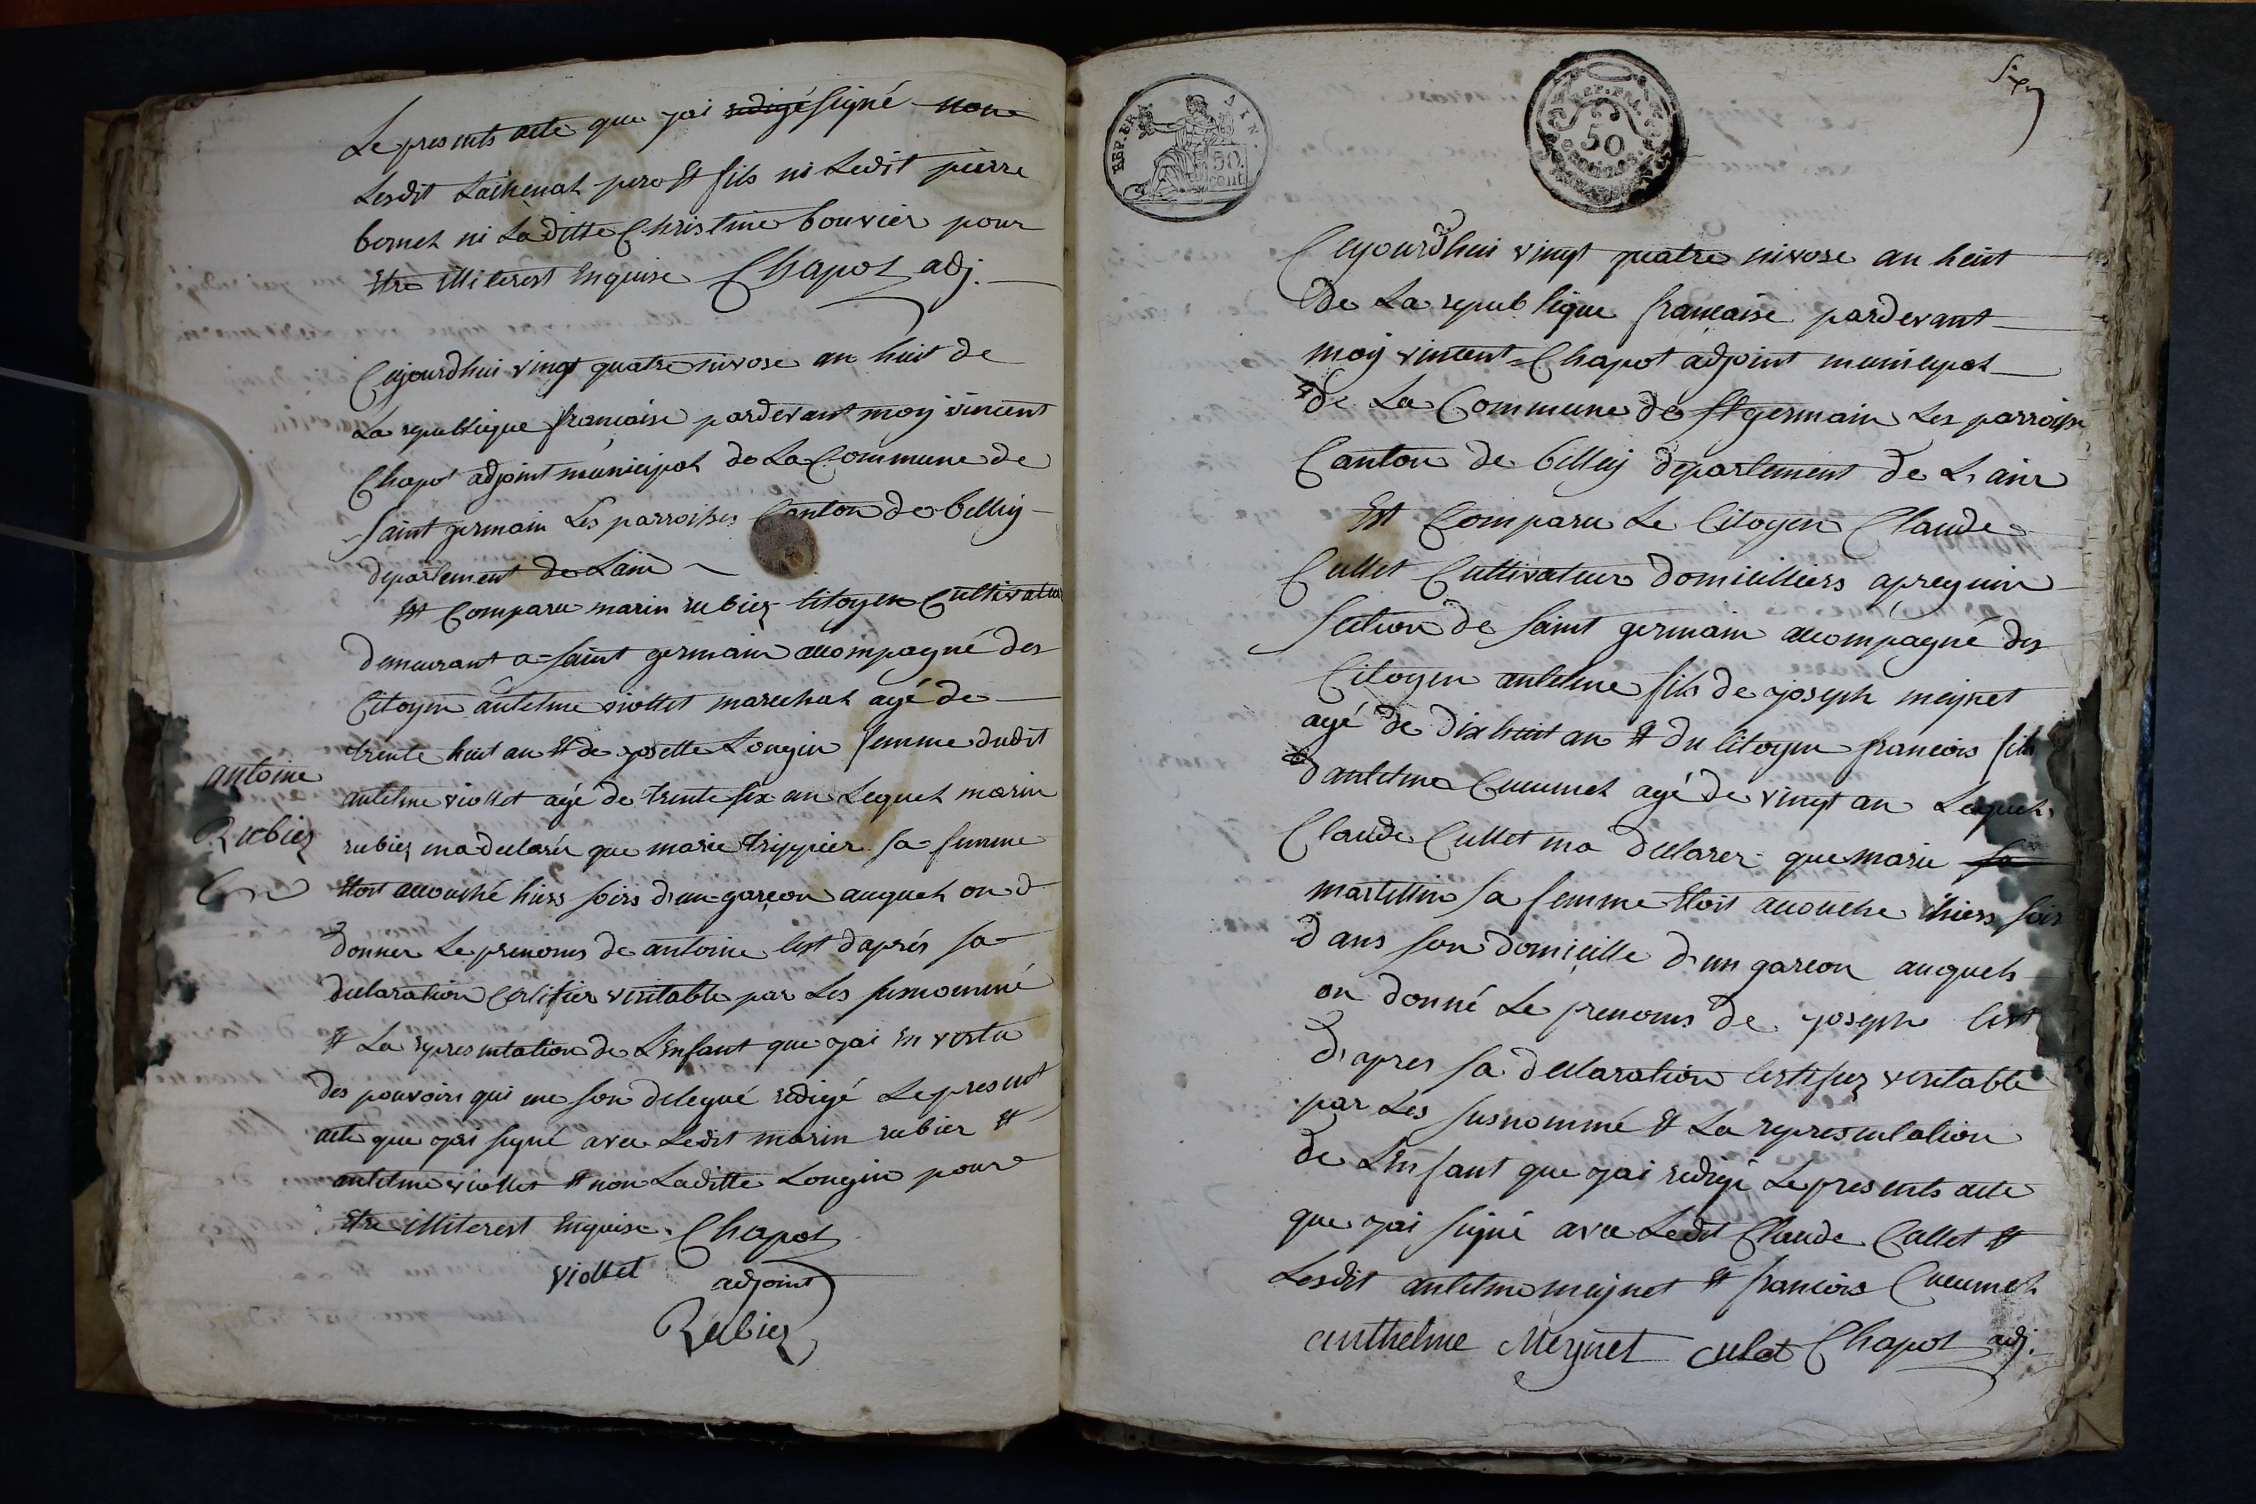 Le presents acte que jai redigé signé non
Lesdit Lathenat pere et fils ni Ledit pierre
bernet ni Laditte Christine bouvier pour
Etre illiterest Enquise Chapot adj.
Cejourdhui vingt quatre nivose an huit de
La republique francaise pardevant moy vincent
Chapot adjoint municipal de La Commune de
Saint germain Les parroisses Canton de belley
departement de Lain
Est Comparu marin rubier citoyen Cultivateur
demeurant a Saint germain accompagné des
Citoyen antelme viollet marechal agé de
trente huit an et de josette Longin femme dudit
antelme viollet agé de trente six an Lequel marin
rubier ma declaré que marie trippier sa femme
Etoit accouché hiers soirs d'un garçon auquel on d
donner Le prenoms de antoine Cest daprés sa
declaration Certifier veritable par Les susnommé
et La representation de LEnfant que jai En vertu
des pouvoirs qui me son delegué redigé Le present
acte que jai signé avec Ledit marin rubier et
antelme viollet et non Laditte Longin pour
Etre illiterest Enquise. Chapot
viollet adjoint
Rubier
antoine
Rubier
Six
REP. FRA. AIN.
50. cent
REP. FRA.
50
Cejourdhui vingt quatre nivose an huit
de La republique francaise pardevant
moy vincent Chapot adjoint municipal
de La Commune de St germain Les parroisse
Canton de belley departement de L'ain
Est Comparu Le Citoyen Claude
Cullet Cultivateur domicilliers apregnin
section de saint germain accompagné des
Citoyen antelme fils de joseph meynet
agé de dix huit an et du citoyen francois fils
dantelme Cueumel agé de vingt an Lequel
Claude Cullet ma declarer que marie sa
martellin sa femme Etoit accouche hiers soir
dans son domicille d'un garcon auquels
on donné Le prenoms de joseph Cest
d'apres sa declaration certifier veritable
par Les susnommé et La representation
de LEnfant que jai redigé Le presents acte
que jai signé avec Ledit Claude Cullet et
Lesdit antelme meynet et francois Cueumel
anthelme Meynet culet Chapot adj.